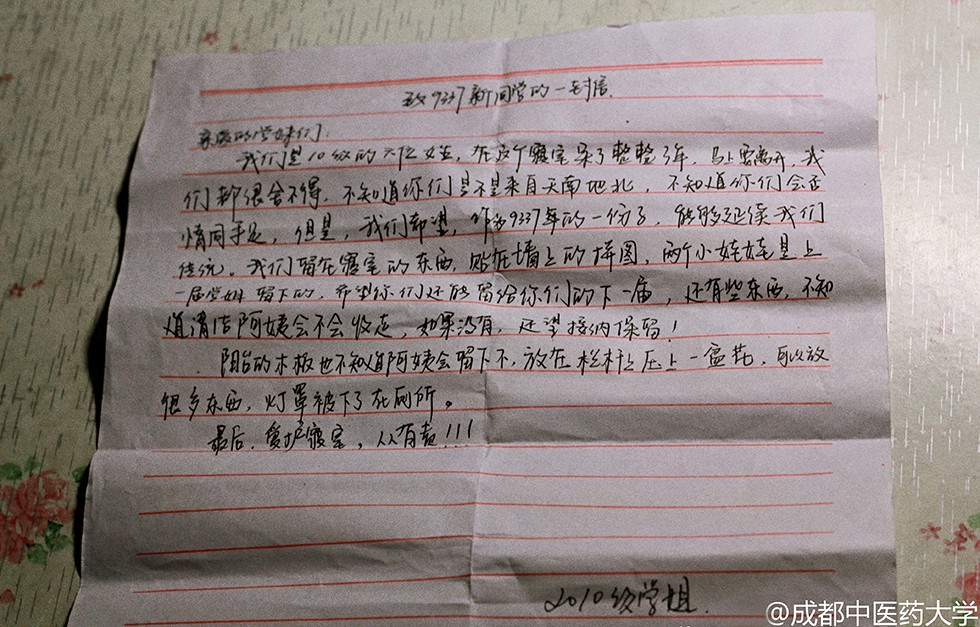 致9337新同学的一封信.
亲爱的学妹们:
我们是10级的六位女生，在这个寝室呆了整整3年，马上要离开，我
们都很舍不得，不知道你们是不是来自天南地北，不知道你们会否
情同手足，但是，我们希望，作为9337的一份子，能够延续我们
传统。我们留在寝室的东西，贴在墙上的拼图，两个小娃娃是上
一届学姐留下的，希望你们还能留给你们的下一届，还有些东西，不知
道清洁阿姨会不会收走，如果没有，还望接纳保留！
阳台的木板也不知道阿姨会留下不，放在栏杆上压上一盆花，可以放
很多东西，灯罩被下了在厕所。
最后，爱护寝室，人人有责!!!
2010级学姐.
@成都中医药大学